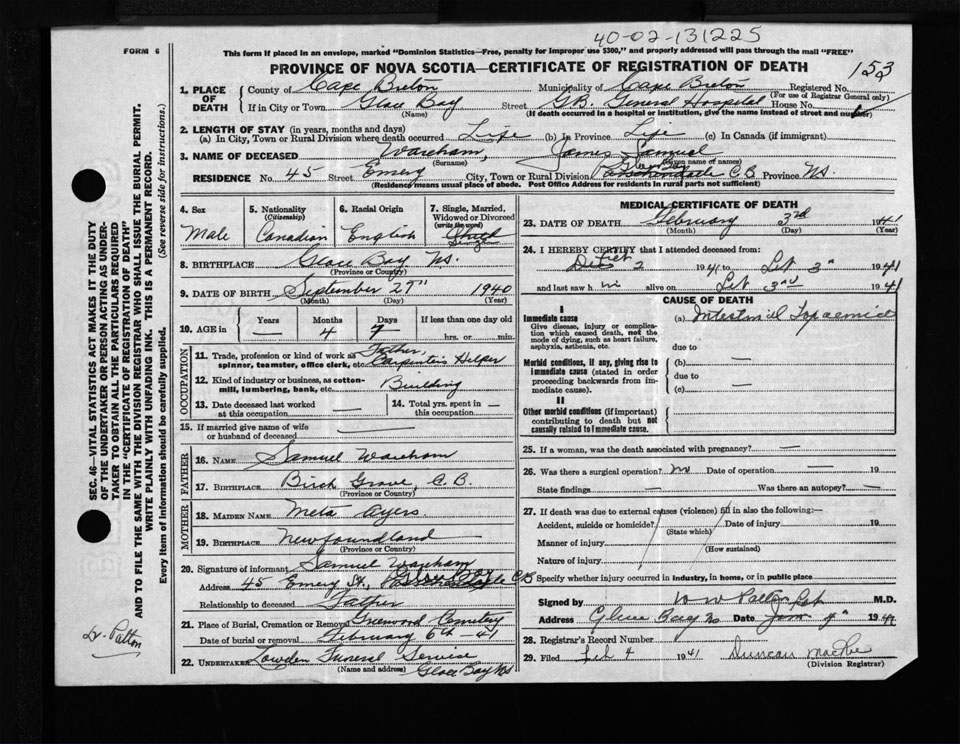 40-02-131225
FORM 6
This form if placed in an envelope, marked "Dominion Statistics—Free, penalty for improper use $300," and properly addressed will pass through the mail "FREE"
PROVINCE OF NOVA SCOTIA—CERTIFICATE OF REGISTRATION OF DEATH
153
1. PLACE OF DEATH
County of Cape Breton Municipality of Cape Breton Registered No.
(For use of Registrar General only)
If in City or Town Glace Bay Street G.B. General Hospital House No.
(Name) (If death occurred in a hospital or institution, give name instead of street and number)
2. LENGTH OF STAY (in years, months and days)
(a) In City, Town or Rural Division where death occurred Life (b) In Province Life (c) In Canada (if immigrant)
3. NAME OF DECEASED Wareham, James Samuel
(Surname) (Given name or names)
Glace Bay
RESIDENCE No. 45 Street Emery City, Town or Rural Division C.B. Province N.S.
(Residence means usual place of abode. Post Office Address for residents in rural parts not sufficient)
4. Sex
Male
5. Nationality
(Citizenship)
Canadian
6. Racial Origin
English
7. Single, Married, Widowed or Divorced
(write the word)
Single
8. BIRTHPLACE Glace Bay N.S.
(Province or Country)
9. DATE OF BIRTH September 27" 1940
(Month) (Day) (Year)
10. AGE in Years — Months 4 Days 7 If less than one day old
hrs. or min.
OCCUPATION
11. Trade, profession or kind of work as spinner, teamster, office clerk, etc. Father Carpenters Helper
12. Kind of industry or business, as cotton-mill, lumbering, bank, etc. Building
13. Date deceased last worked at this occupation —
14. Total yrs. spent in this occupation —
15. If married give name of wife or husband of deceased —
FATHER
16. NAME Samuel Wareham
17. BIRTHPLACE Birch Grove, C.B.
(Province or Country)
MOTHER
18. MAIDEN NAME Meta Ayers
19. BIRTHPLACE Newfoundland
(Province or Country)
20. Signature of informant Samuel Wareham
Address 45 Emery St., C.B.
Relationship to deceased Father
21. Place of Burial, Cremation or Removal Greenwood Cemetery
Date of burial or removal February 6th - 41
22. UNDERTAKER Lowden Funeral Service
(Name and address) Glace Bay N.S.
MEDICAL CERTIFICATE OF DEATH
23. DATE OF DEATH February 3rd 1941
(Month) (Day) (Year)
24. I HEREBY CERTIFY that I attended deceased from:
2 1941 to Feb 3rd 1941
and last saw h im alive on Feb 3rd 1941
CAUSE OF DEATH
I
Immediate cause
Give disease, injury or complication which caused death, not the mode of dying, such as heart failure, asphyxia, asthenia, etc.
(a) Intestinal Toxaemia
due to
Morbid conditions, if any, giving rise to immediate cause (stated in order proceeding backwards from immediate cause).
(b) —
due to
(c) —
II
Other morbid conditions (if important) contributing to death but not causally related to immediate cause.
25. If a woman, was the death associated with pregnancy? —
26. Was there a surgical operation? no Date of operation — 19
State findings — Was there an autopsy? —
27. If death was due to external causes (violence) fill in also the following:—
Accident, suicide or homicide? Date of injury 19
(State which)
Manner of injury
(How sustained)
Nature of injury
Specify whether injury occurred in industry, in home, or in public place
Signed by M.D.
Address Glace Bay N.S. Date 19
28. Registrar's Record Number
29. Filed Feb 4 1941 Duncan MacRae
(Division Registrar)
SEC. 46—VITAL STATISTICS ACT MAKES IT THE DUTY
OF THE UNDERTAKER OR PERSON ACTING AS UNDER-
TAKER TO OBTAIN ALL THE PARTICULARS REQUIRED
IN THE "CERTIFICATE OF REGISTRATION OF DEATH"
AND TO FILE THE SAME WITH THE DIVISION REGISTRAR WHO SHALL ISSUE THE BURIAL PERMIT.
WRITE PLAINLY WITH UNFADING INK. THIS IS A PERMANENT RECORD.
Every item of information should be carefully supplied. (See reverse side for instructions.)
Dr. Patton